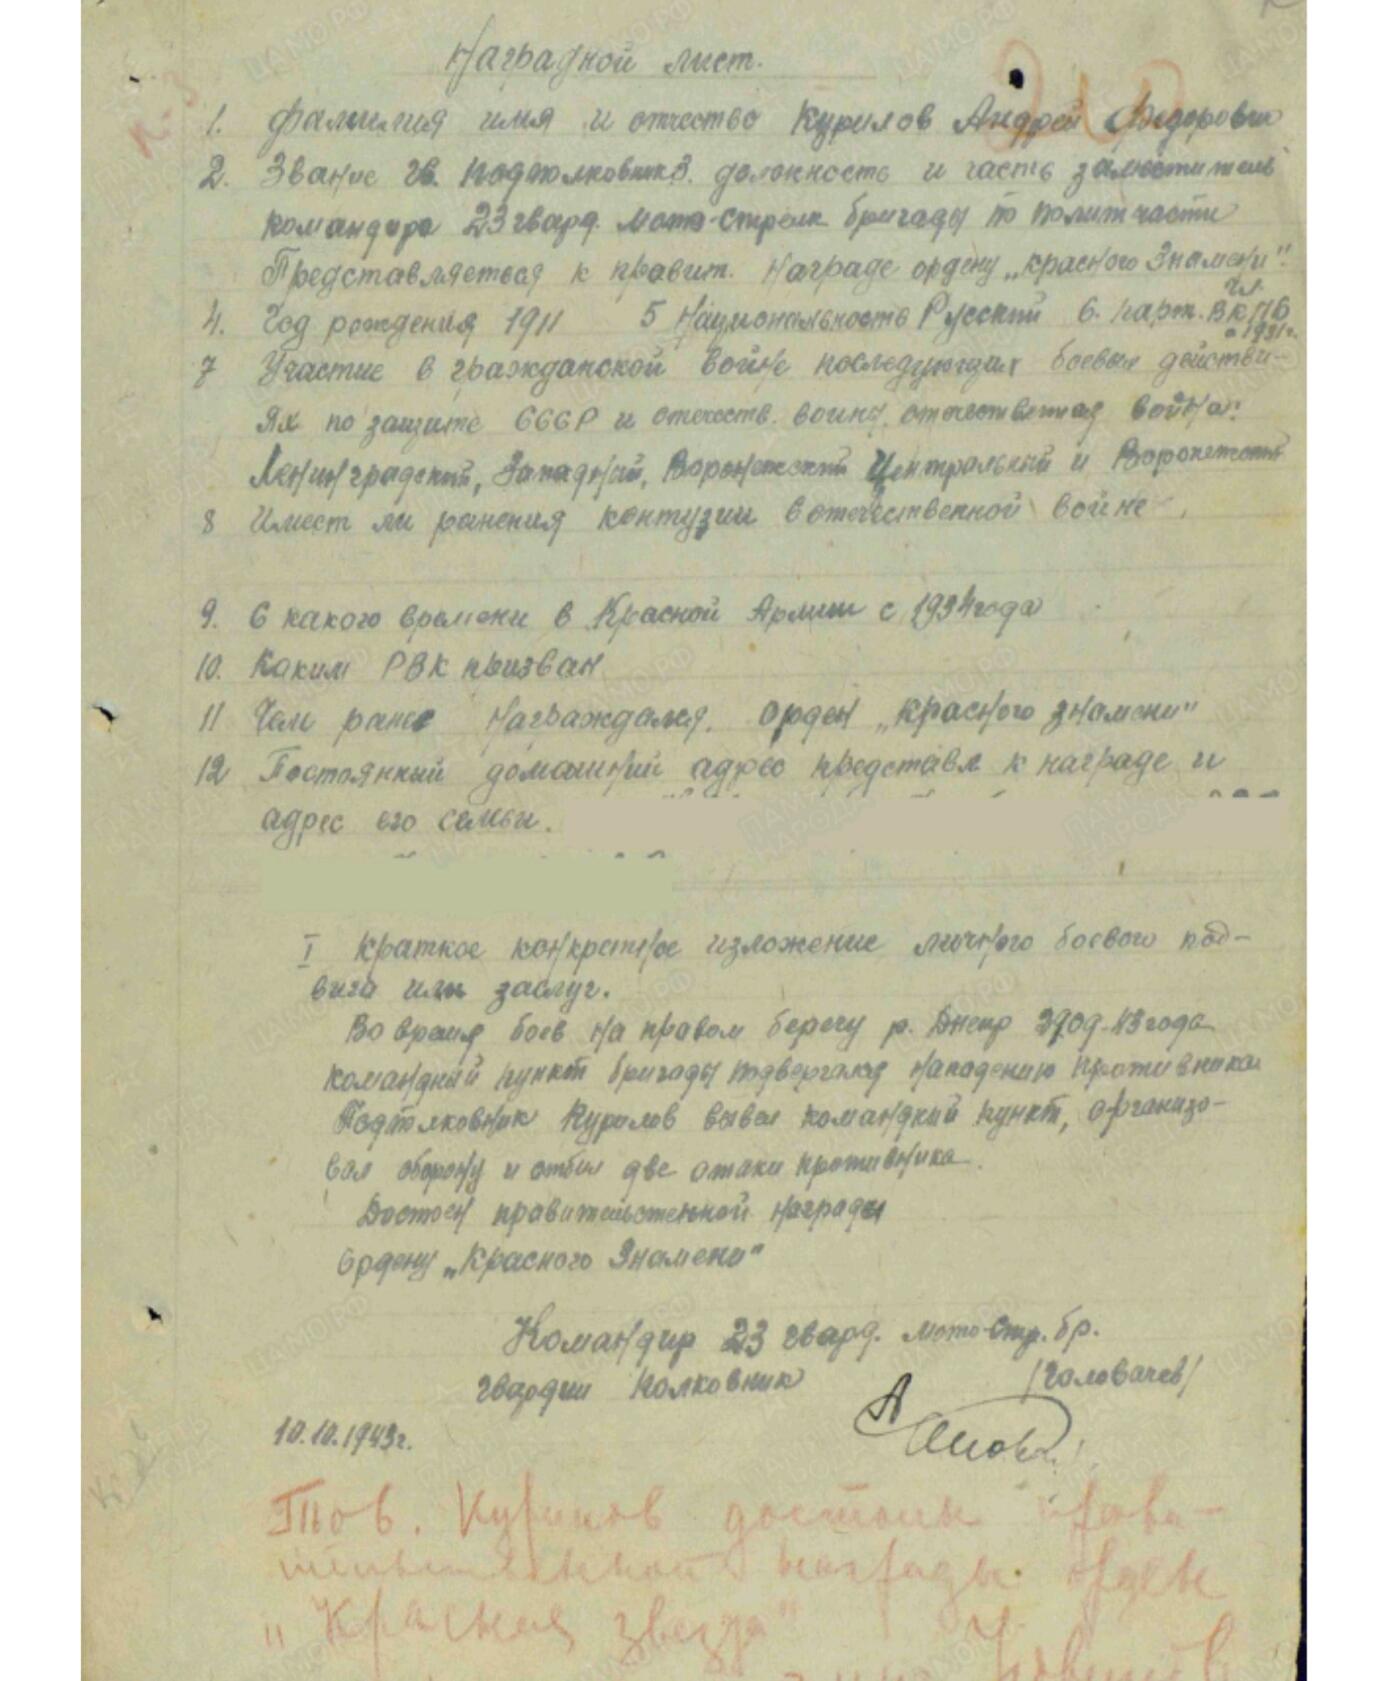 Наградной лист.
1. Фамилия имя и отчество Курилов Андрей Фёдорович
2. Звание гв. подполковник 3. должность и часть заместитель
командира 23 гвард. мото-стрелк бригады по политчасти
Представляеться к правит. награде ордену „Красного Знамени".
4. Год рождения 1911 5 Национальность Русский 6. парт. чл. ВКПб
с 1931г.
7 Участие в гражданской войне последующих боевых действи-
ях по защите СССР и отечеств. войну. отечественная война:
Ленинградский, Западный, Воронежский Центральный и Воронежский
8 Имеет ли ранения контузии в отечественной войне
9. С какого времени в Красной Армии с 1934 года
10. Каким РВК призван
11 Чем ранее награждался. орден „Красного знамени"
12 Постоянный домашний адрес представл к награде и
адрес его семьи.
I Краткое конкретное изложение личного боевого под-
вига или заслуг.
Во время боев на правом берегу р. Днепр 43 года
командный пункт бригады подвергался нападению противника
Подполковник Курилов вывел командный пункт, организо-
вал оборону и отбил две атаки противника.
Достоен правительственной награды
Ордену „Красного Знамени"
Командир 23 гвард. мото-стр. бр.
гвардии полковник /Головачев/
10.10.1943г.
Тов. Курилов достоин прави-
тельственной награды орден
„Красная звезда"